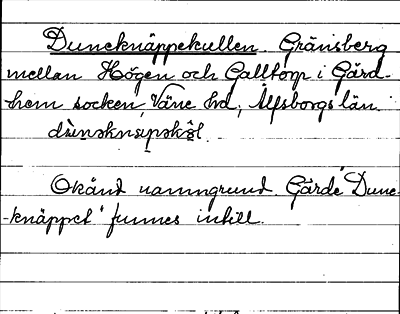 Duneknäppekullen. Gränsberg
mellan Högen och Galltorp i Gärd-
hem socken, Väne hd, Älfsborgs län.
Okänd namngrund. Gärde "Dune-
-knäppet" funnes intill.